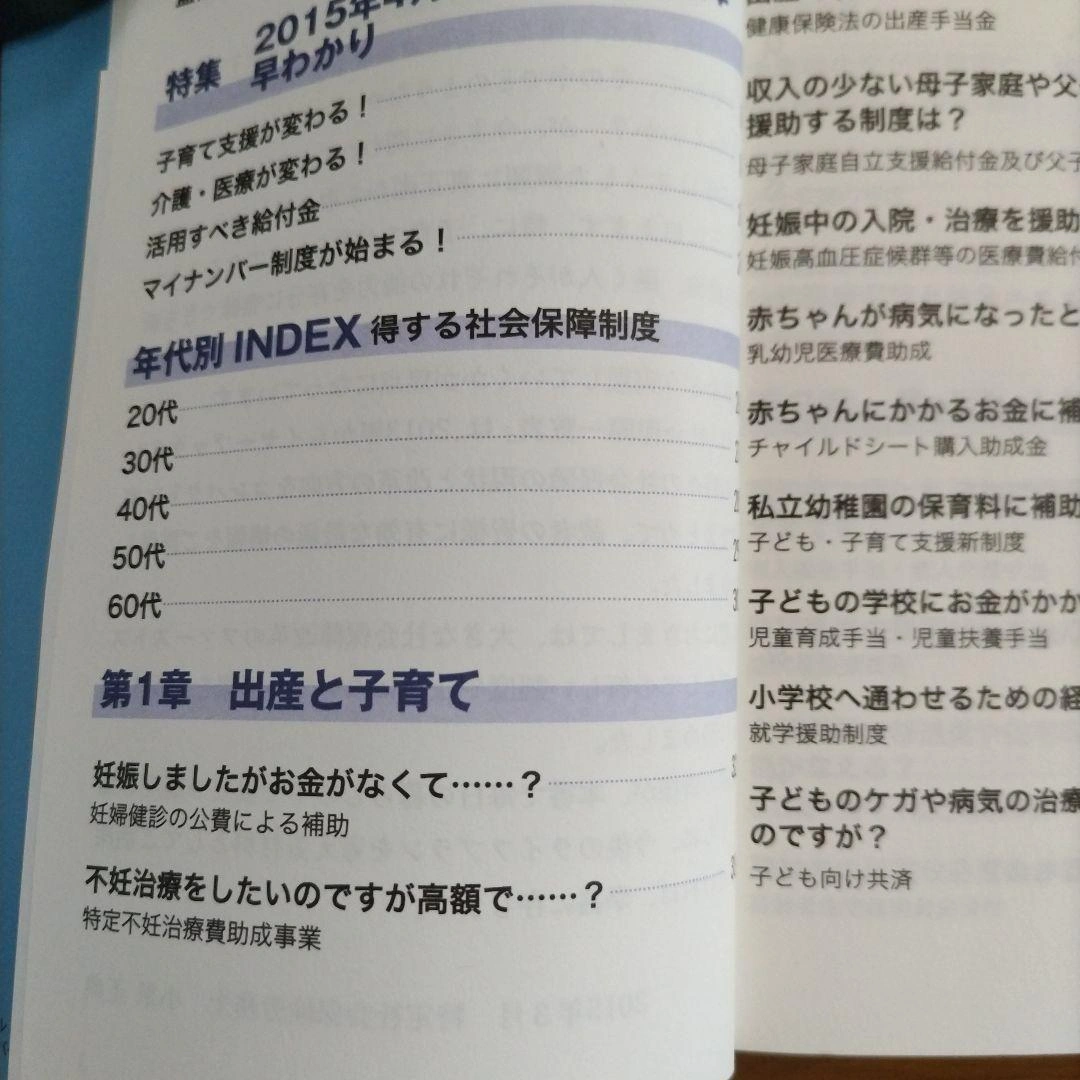 特集 2015年4月
早わかり
子育て支援が変わる！
介護・医療が変わる！
活用すべき給付金
マイナンバー制度が始まる！
年代別 INDEX 得する社会保障制度
20代
30代
40代
50代
60代
第1章 出産と子育て
妊娠しましたがお金がなくて……？
妊婦健診の公費による補助
不妊治療をしたいのですが高額で……？
特定不妊治療費助成事業
健康保険法の出産手当金
収入の少ない母子家庭や父
援助する制度は？
母子家庭自立支援給付金及び父子
妊娠中の入院・治療を援助
妊娠高血圧症候群等の医療費給付
赤ちゃんが病気になったと
乳幼児医療費助成
赤ちゃんにかかるお金に補
チャイルドシート購入助成金
私立幼稚園の保育料に補助
子ども・子育て支援新制度
子どもの学校にお金がかか
児童育成手当・児童扶養手当
小学校へ通わせるための経
就学援助制度
子どものケガや病気の治療
のですが？
子ども向け共済